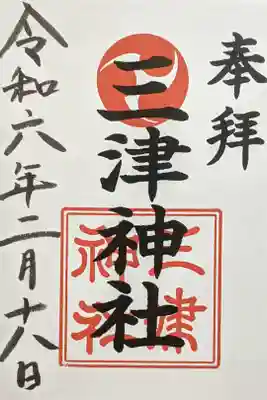 奉拝
三津神社
三津神社
令和六年二月十八日